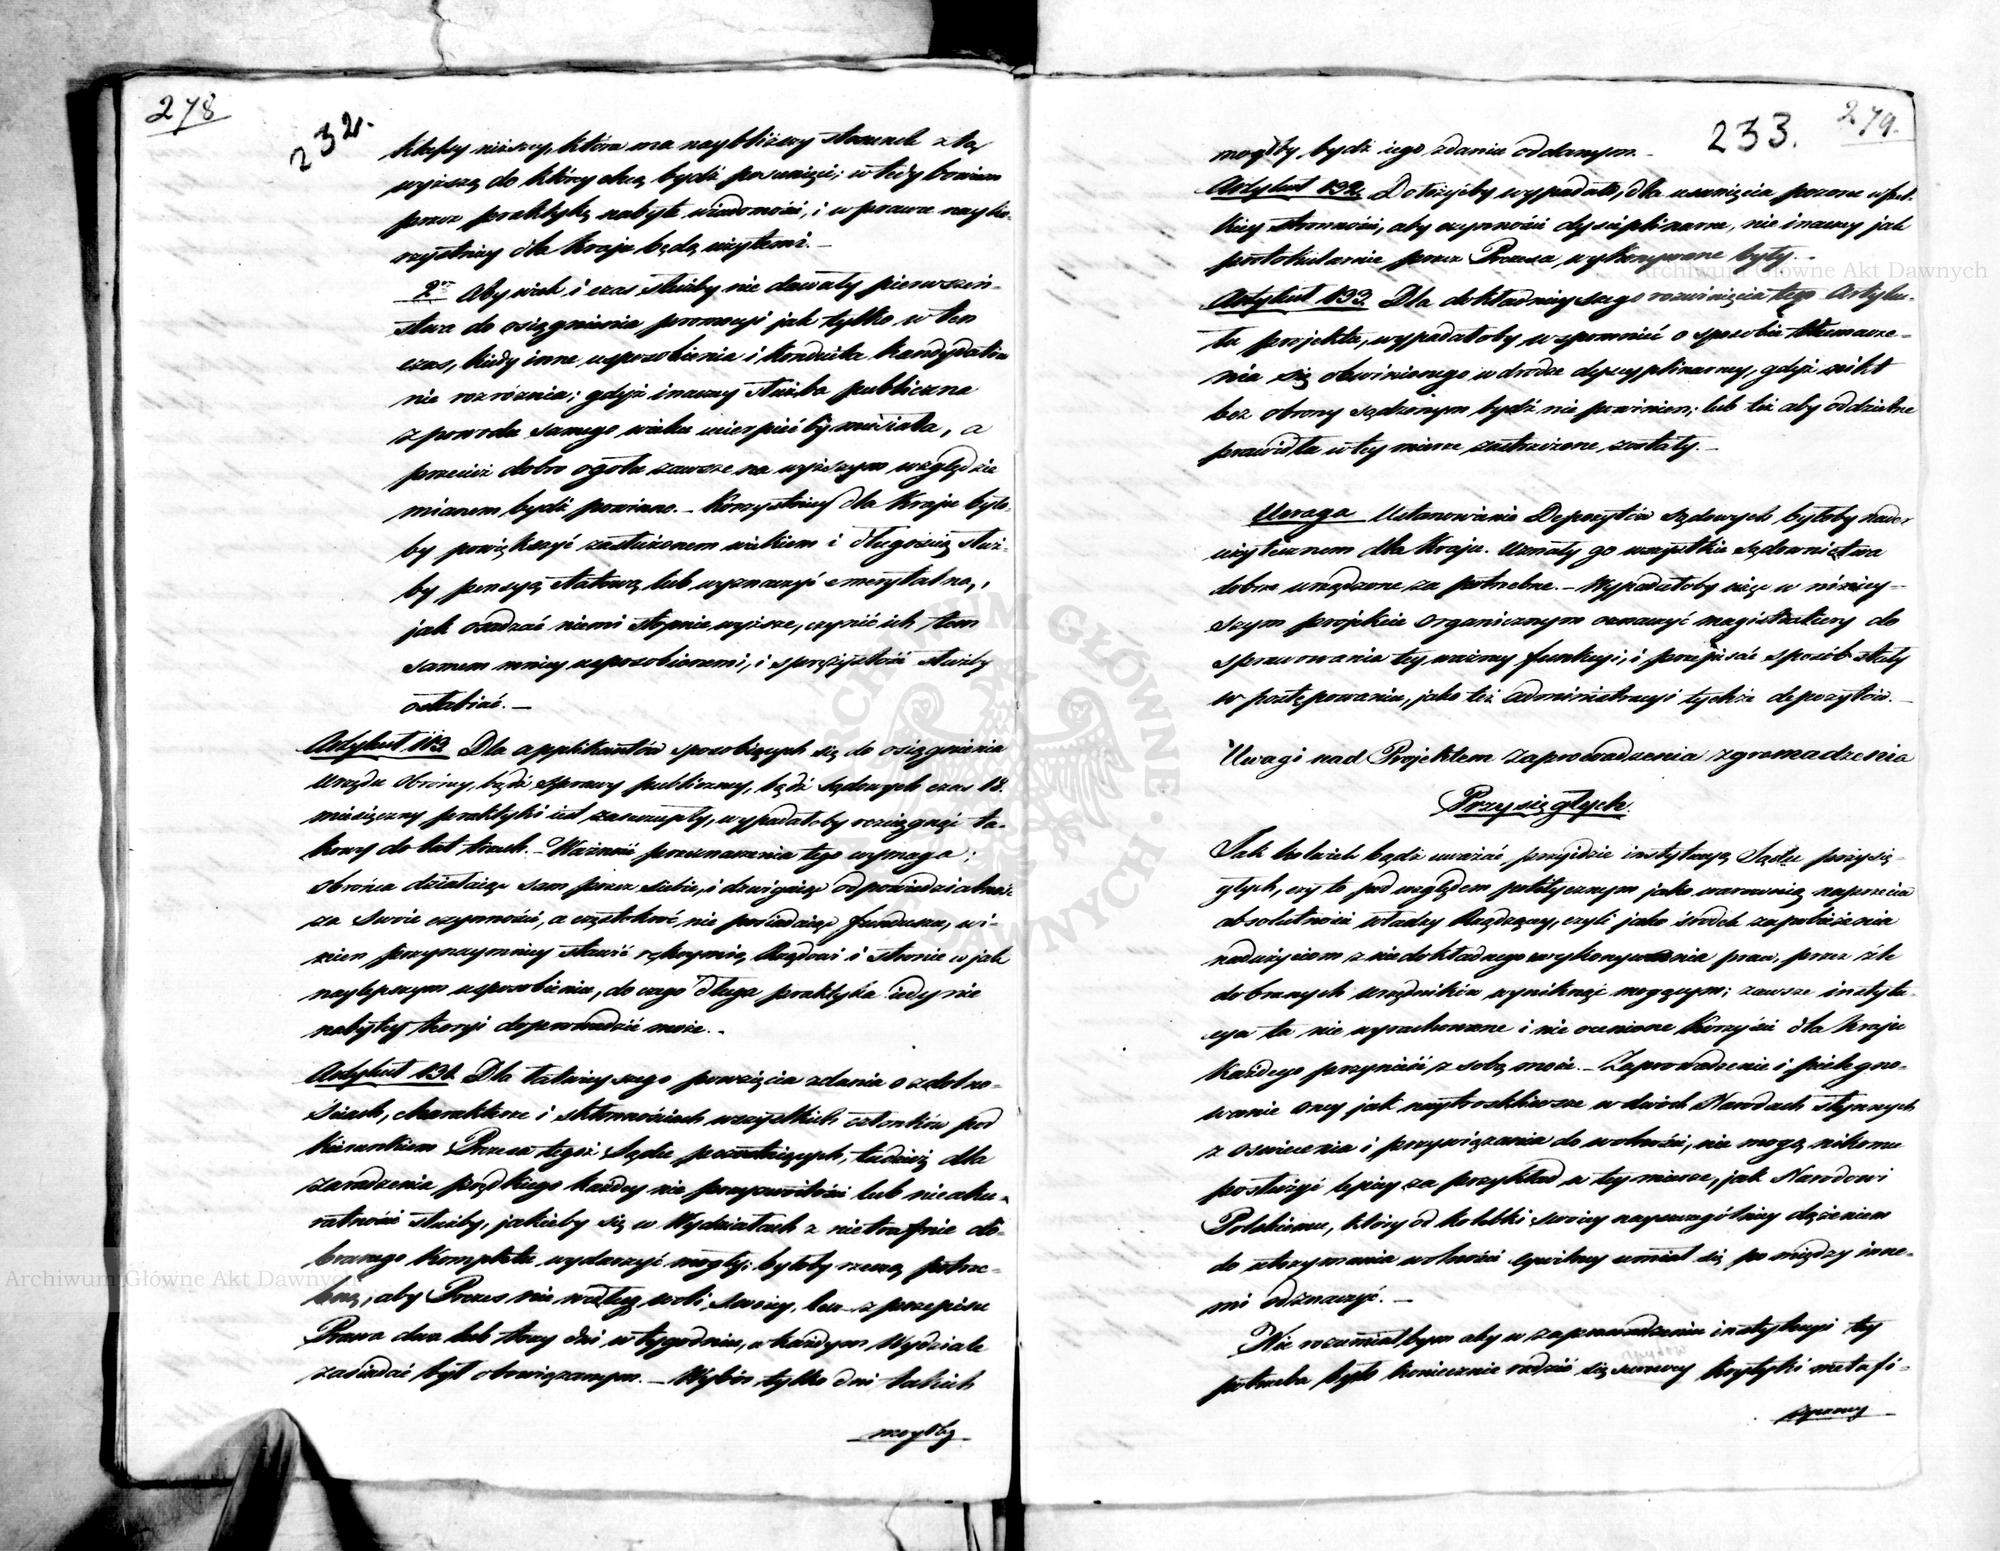 278
232.
klassy niższey, która ma naybliższy stosunek z tą
wyższą do któréy chcą bydź posunięci; wtedy bowiem
przez praktykę nabyte wiadomości, i wprawa nayko-
rzystniey dla Kraju będą użytemi. –
2re Aby wiek i czas służby nie dawały pierwszeń-
stwa do osiągnienia promocyi jak tylko w ten
czas, kiedy inne usposobienia i konduita kandydatów
nie rozróżnia; gdyż inaczey służba publiczna
z powodu samego wieku cierpiéć by musiała, a
przecież dobro ogółu zawsze na wyższym względzie
mianem bydź powinno. – Korzystniey dla Kraju było-
by powiększyć zasłużonem wiekiem i długością służ-
by pensyą etatową lub wyznaczyć emerytalną,
jak osadzać niemi stopnie wyższe, czynić ich tem
samem mniey usposobionemi, i sprężystość służby
osłabiać. –
Artykuł 113. Dla applikantów sposobiących się do osiągnienia
Urzędu Obrony, bądź sprawy publiczney, bądź sądowych czas 18.
miesięczny praktyki jest zaszczupły, wypadałoby rozciągnąć ta-
kowy do lat trzech. – Ważność przeznaczenia tego wymaga;
obrońca działając sam przez siebie, i dźwigając odpowiedzialność
za swoie czynności, a częstokroć nie posiadając funduszu, wi-
nien przynaymniey stawić rękoymię Rządowi i stronie w jak
naylepszym usposobieniu, do czego długa praktyka jedynie
nabytey teoryi doprowadzić może. –
Artykuł 131. Dla łatwieyszego powzięcia zdania o zdolno-
ściach, charakterze i skłonnościach wszystkich członków pod
kierunkiem Prezesa tegoż Sądu pozostaiących, tudzież dla
zaradzenia prędkiego każdey nie przyzwoitości lub nieaku-
ratności służby, jakieby się w Wydziałach z nietrafnie do-
branego Kompletu wydarzyć mogły: byłoby rzeczą potrze-
bną, aby Prezes nie według woli swoiey, lecz z przepisu
Prawa dwa lub trzy dni w tygodniu, w każdym Wydziale
zasiadać był obowiązanym. – Wybór tylko dni takich
mogłby
233.
279.
mogłby bydź jego zdaniu oddanym. –
Artykuł 132. Dotożyćby wypadało, dla usunięcia pozoru wszel-
kiey stronności, aby czynności dyscyplinarne, nie inaczey jak
protokularnie przez Prezesa, wykonywane były. –
Artykuł 133. Dla dokładnieyszego rozwinięcia tego Artyku-
łu projektu, wypadałoby wspomnieć o sposobie tłumacze-
nia się obwinionego w drodze dyscyplinarney, gdyż nikt
bez obrony sądzonym bydź nie powinien; lub też aby oddzielne
prawidła w tey mierze zastrzeżone zostały. –
Uwaga Ustanowienie Depozytów Sądowych byłoby nader
użytecznem dla Kraju. Uznały go wszystkie sądownictwa
dobrze urządzone za potrzebne. – Wypadałoby więc w niniey-
szym projekcie organicznym oznaczyć magistratury do
sprawowania tey ważney funkcyi, i przepisać sposób stały
w postępowaniu, jako też administracyi tychże depozytów. –
Uwagi nad Projektem zaprowadzenia zgromadzenia
Przysięgłych.
Jak kolwiek bądź uważać przyidzie instytucyą Sądu przysię-
głych, czy to pod względem politycznym jako warownią naprzeciw
absolutności władzy Rządzącey, czyli jako środek zapobieżenia
nadużyciom z niedokładnego wykonywania praw, przez źle
dobranych urzędników wyniknąć mogącym; zawsze instytu-
cya ta nie wyrachowane i nie ocenione korzyści dla kraju
każdego przynieść z sobą może. – Zaprowadzenie i pielęgno-
wanie oney jak naytroskliwsze w dwóch Narodach słynnych
z oświecenia i przywiązania do wolności, nie mogą nikomu
posłużyć lepiey za przykład w tey mierze, jak Narodowi
Polskiemu, który od kolebki swoiey nayszczególniey dążeniem
do utrzymania wolności cywilney umiał się pomiędzy inne-
mi odznaczyć. –
Nie rozumiałbym aby w zaprowadzeniu instytucyi tey
potrzeba było koniecznie radzić się surowey krytyki metafi-
zyczney